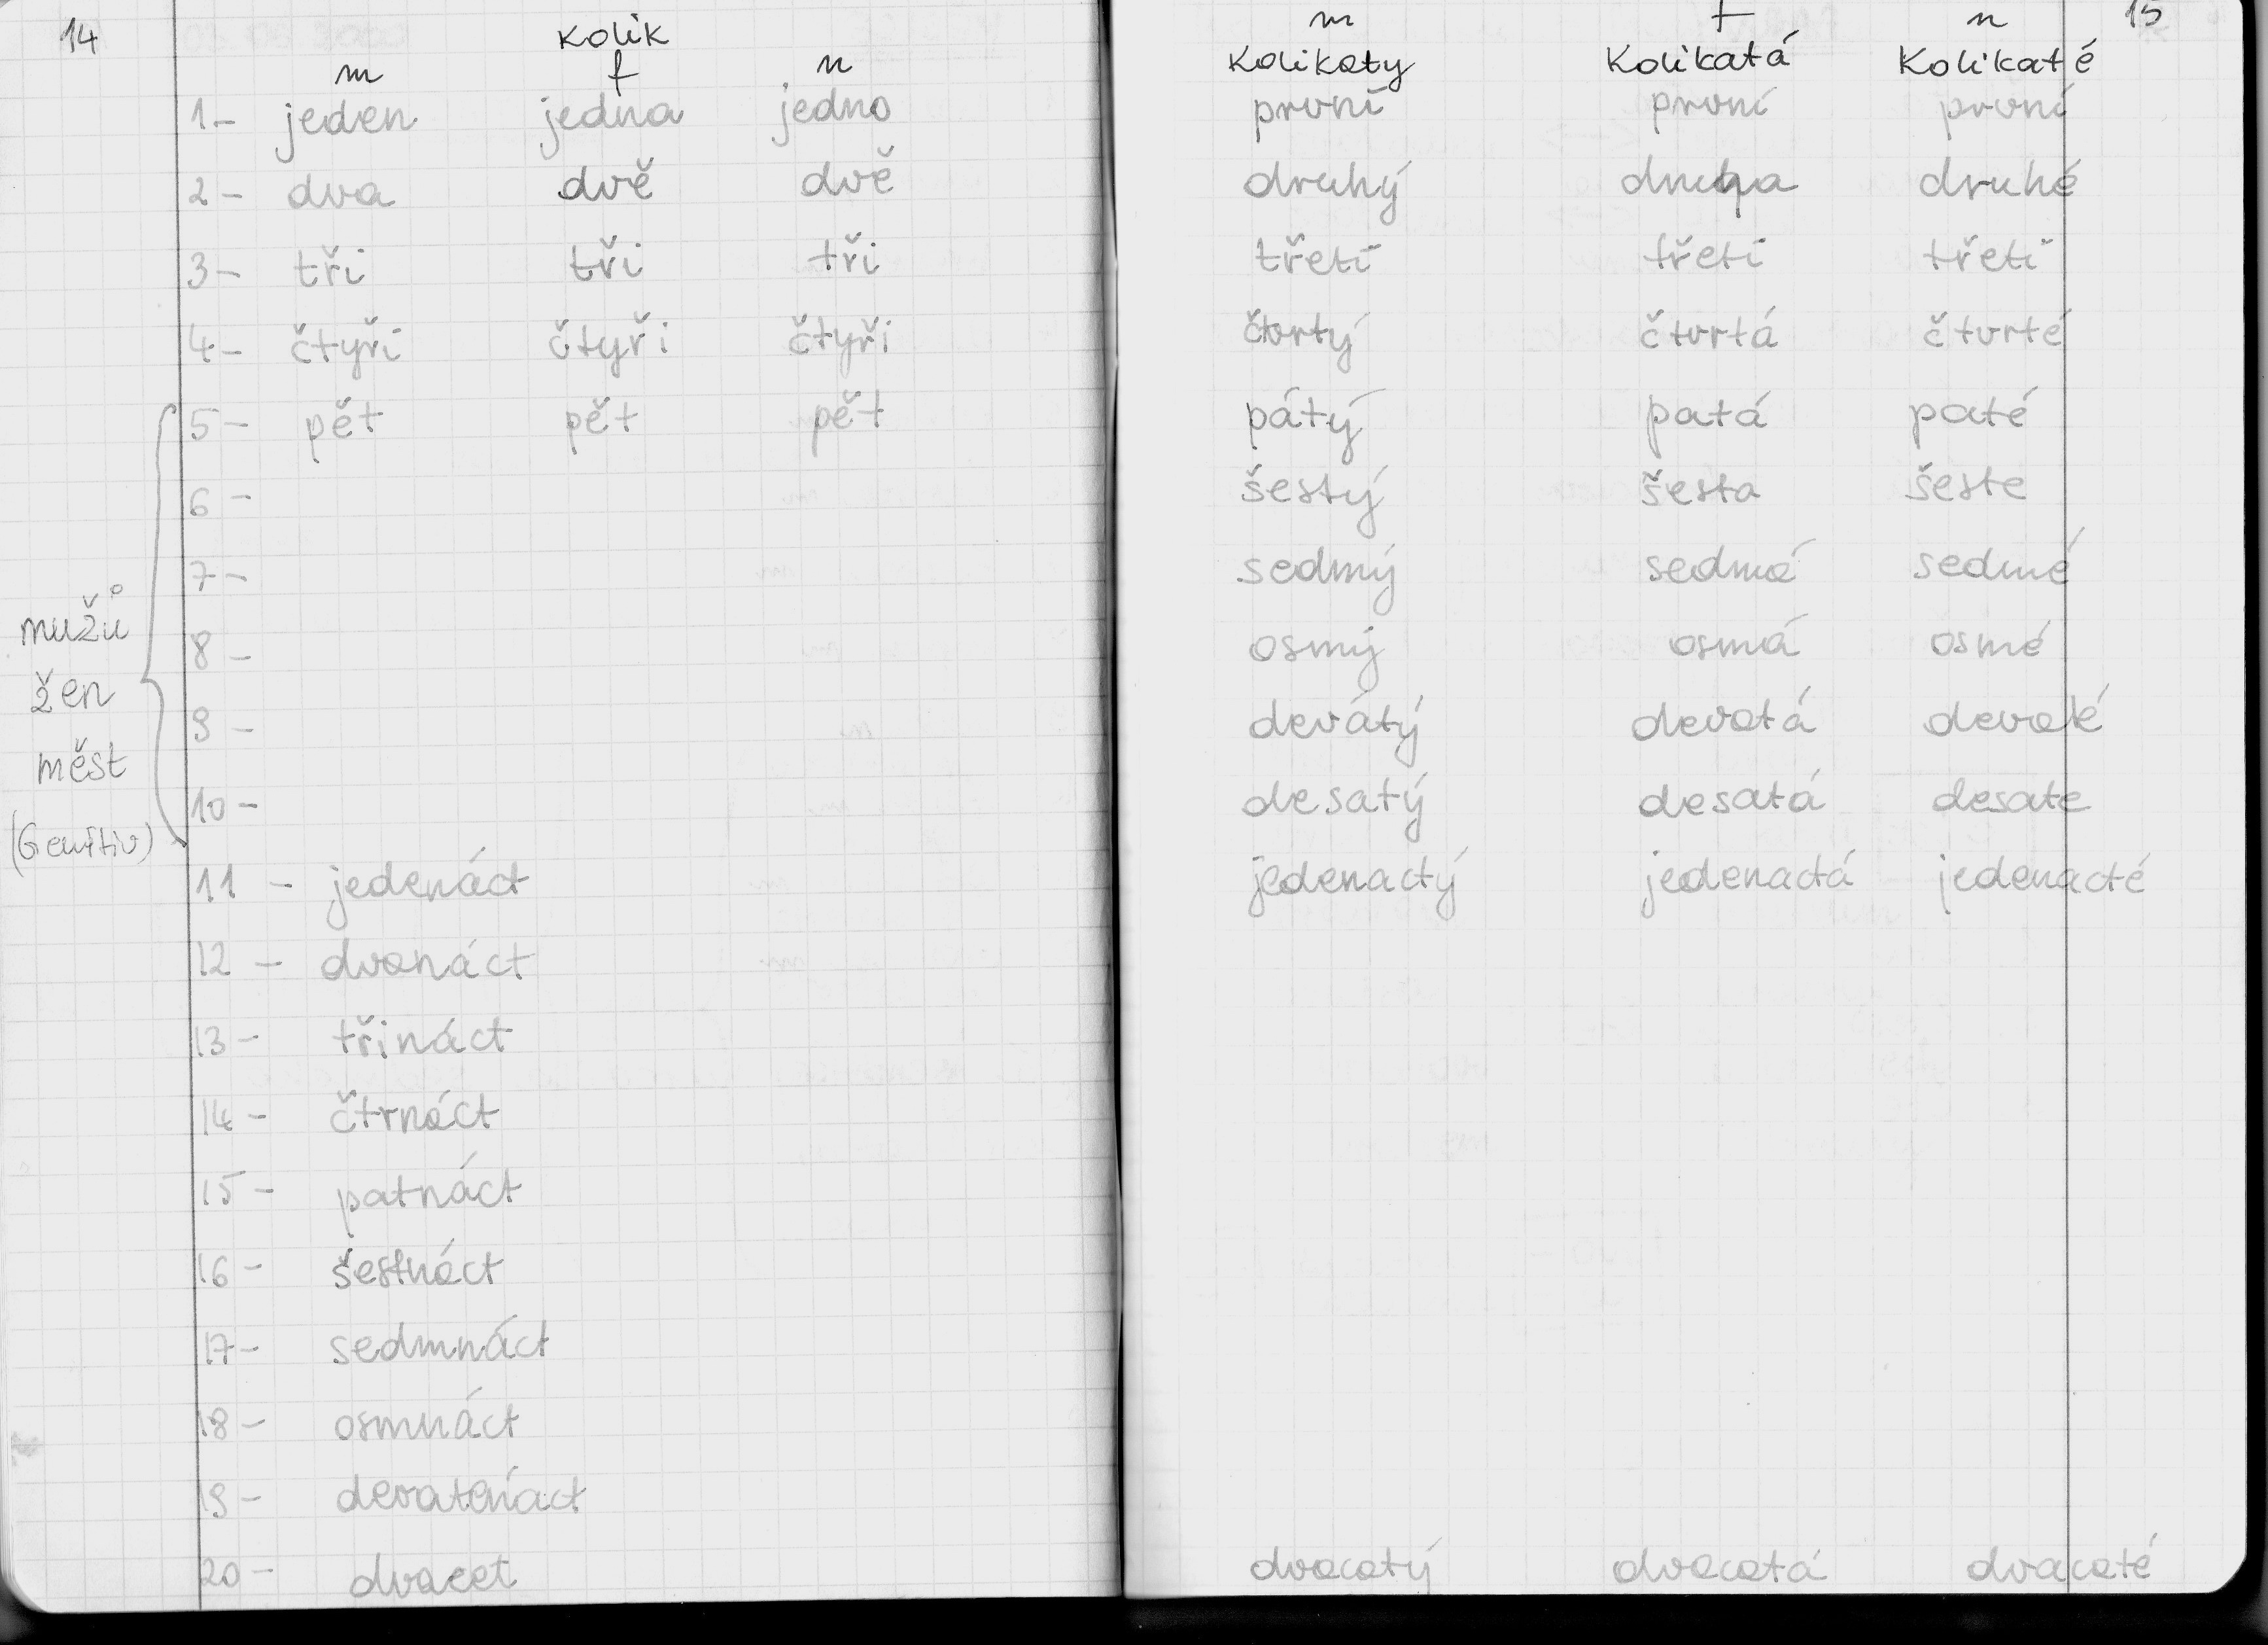 14
kolik
m f n
1- jeden jedna jedno
2- dva dvě dvě
3- tři tři tři
4- čtyři čtyři čtyři
5- pět pět pět
6 -
7-
mužů
8 -
žen
9 -
měst
10-
(Genitiv)
11 - jedenáct
12 - dvanáct
13 - třináct
14 - čtrnáct
15 - patnáct
16 - šestnáct
17- sedmnáct
18 - osmnáct
19 - devatenáct
20 - dvacet
m f n 15
Kolikaty Kolikatá Kolikaté
první první první
druhý druhé
třetí třetí třetí
čtvrtý čtvrtá čtvrté
pátý patá paté
šestý šesta šeste
sedmý sedmá sedmé
osmý osmá osmé
devátý devatá devaté
desatý desatá desate
jedenactý jedenactá jedenacté
dvacatý dvacatá dvacaté